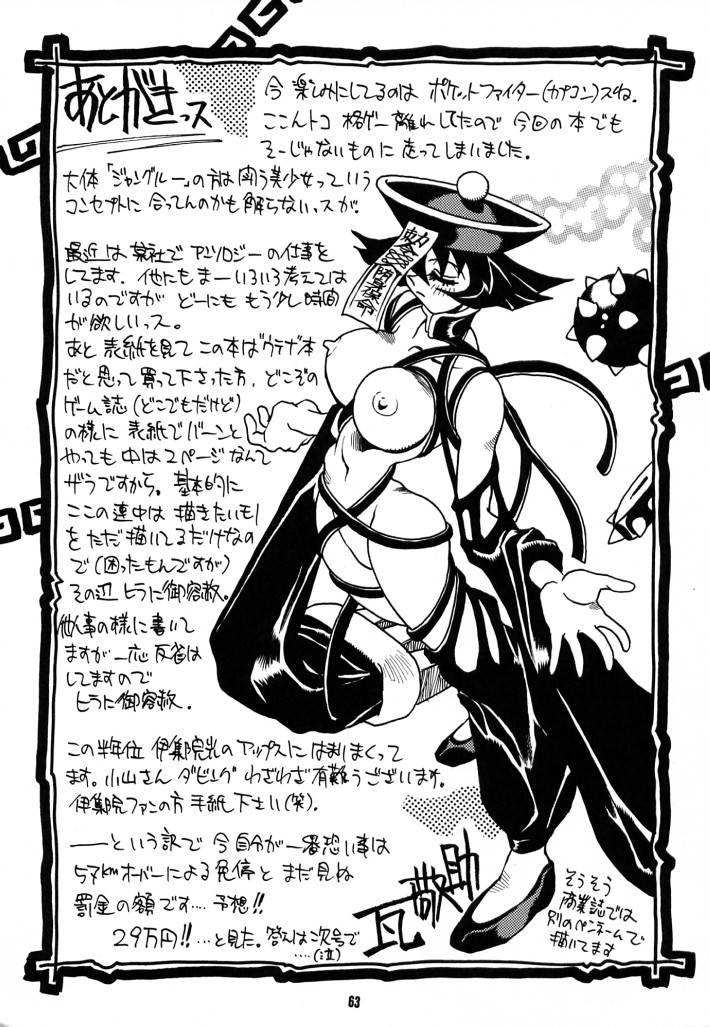 あとがきっス
今 楽しみにしてるのは ポケットファイター(カプコン)スね。
ここんトコ 格ゲー離れしてたので 今回の本でも
そーじゃないものに 走ってしまいました。
大体「ジャングルー」の方は 闘う美少女っていう
コンセプトに 合ってんのかも解らないっスが。
最近は某社で アンソロジーの仕事を
してます。他にもまー いろいろ考えては
いるのですが どーにも もう少し時間
が欲しいっス。
あと 表紙を見て この本はウテナ本
だと思って買って下さった方、どこぞの
ゲーム誌(どこでもだけど)
の様に 表紙でバーンと
やっても中は2ページなんて
ザラですから。基本的に
ここの連中は 描きたいモノ
をただ描いてるだけなの
で(困ったもんですが)
その辺 ヒラに御容赦。
他人事の様に書いて
ますが一応 反省は
してますので
ヒラに御容赦.
この半年位 伊集院光のアップスにはまりまくって
ます。小山さん ダビング わざわざ有難うございます。
伊集院ファンの方 手紙下さい(笑).
――という訳で 今自分が一番恐い事は
57kmオーバーによる免停と まだ見ぬ
罰金の額です‥‥予想!!
29万円!!‥‥と見た。答えは次号で
‥‥(泣)
瓦敬助
そうそう
商業誌では
別のペンネームで
描いてます
63